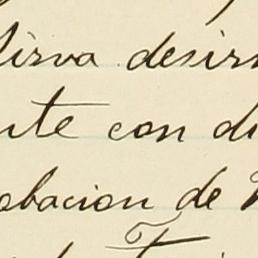 Sirva desir
nte con di
obacion de